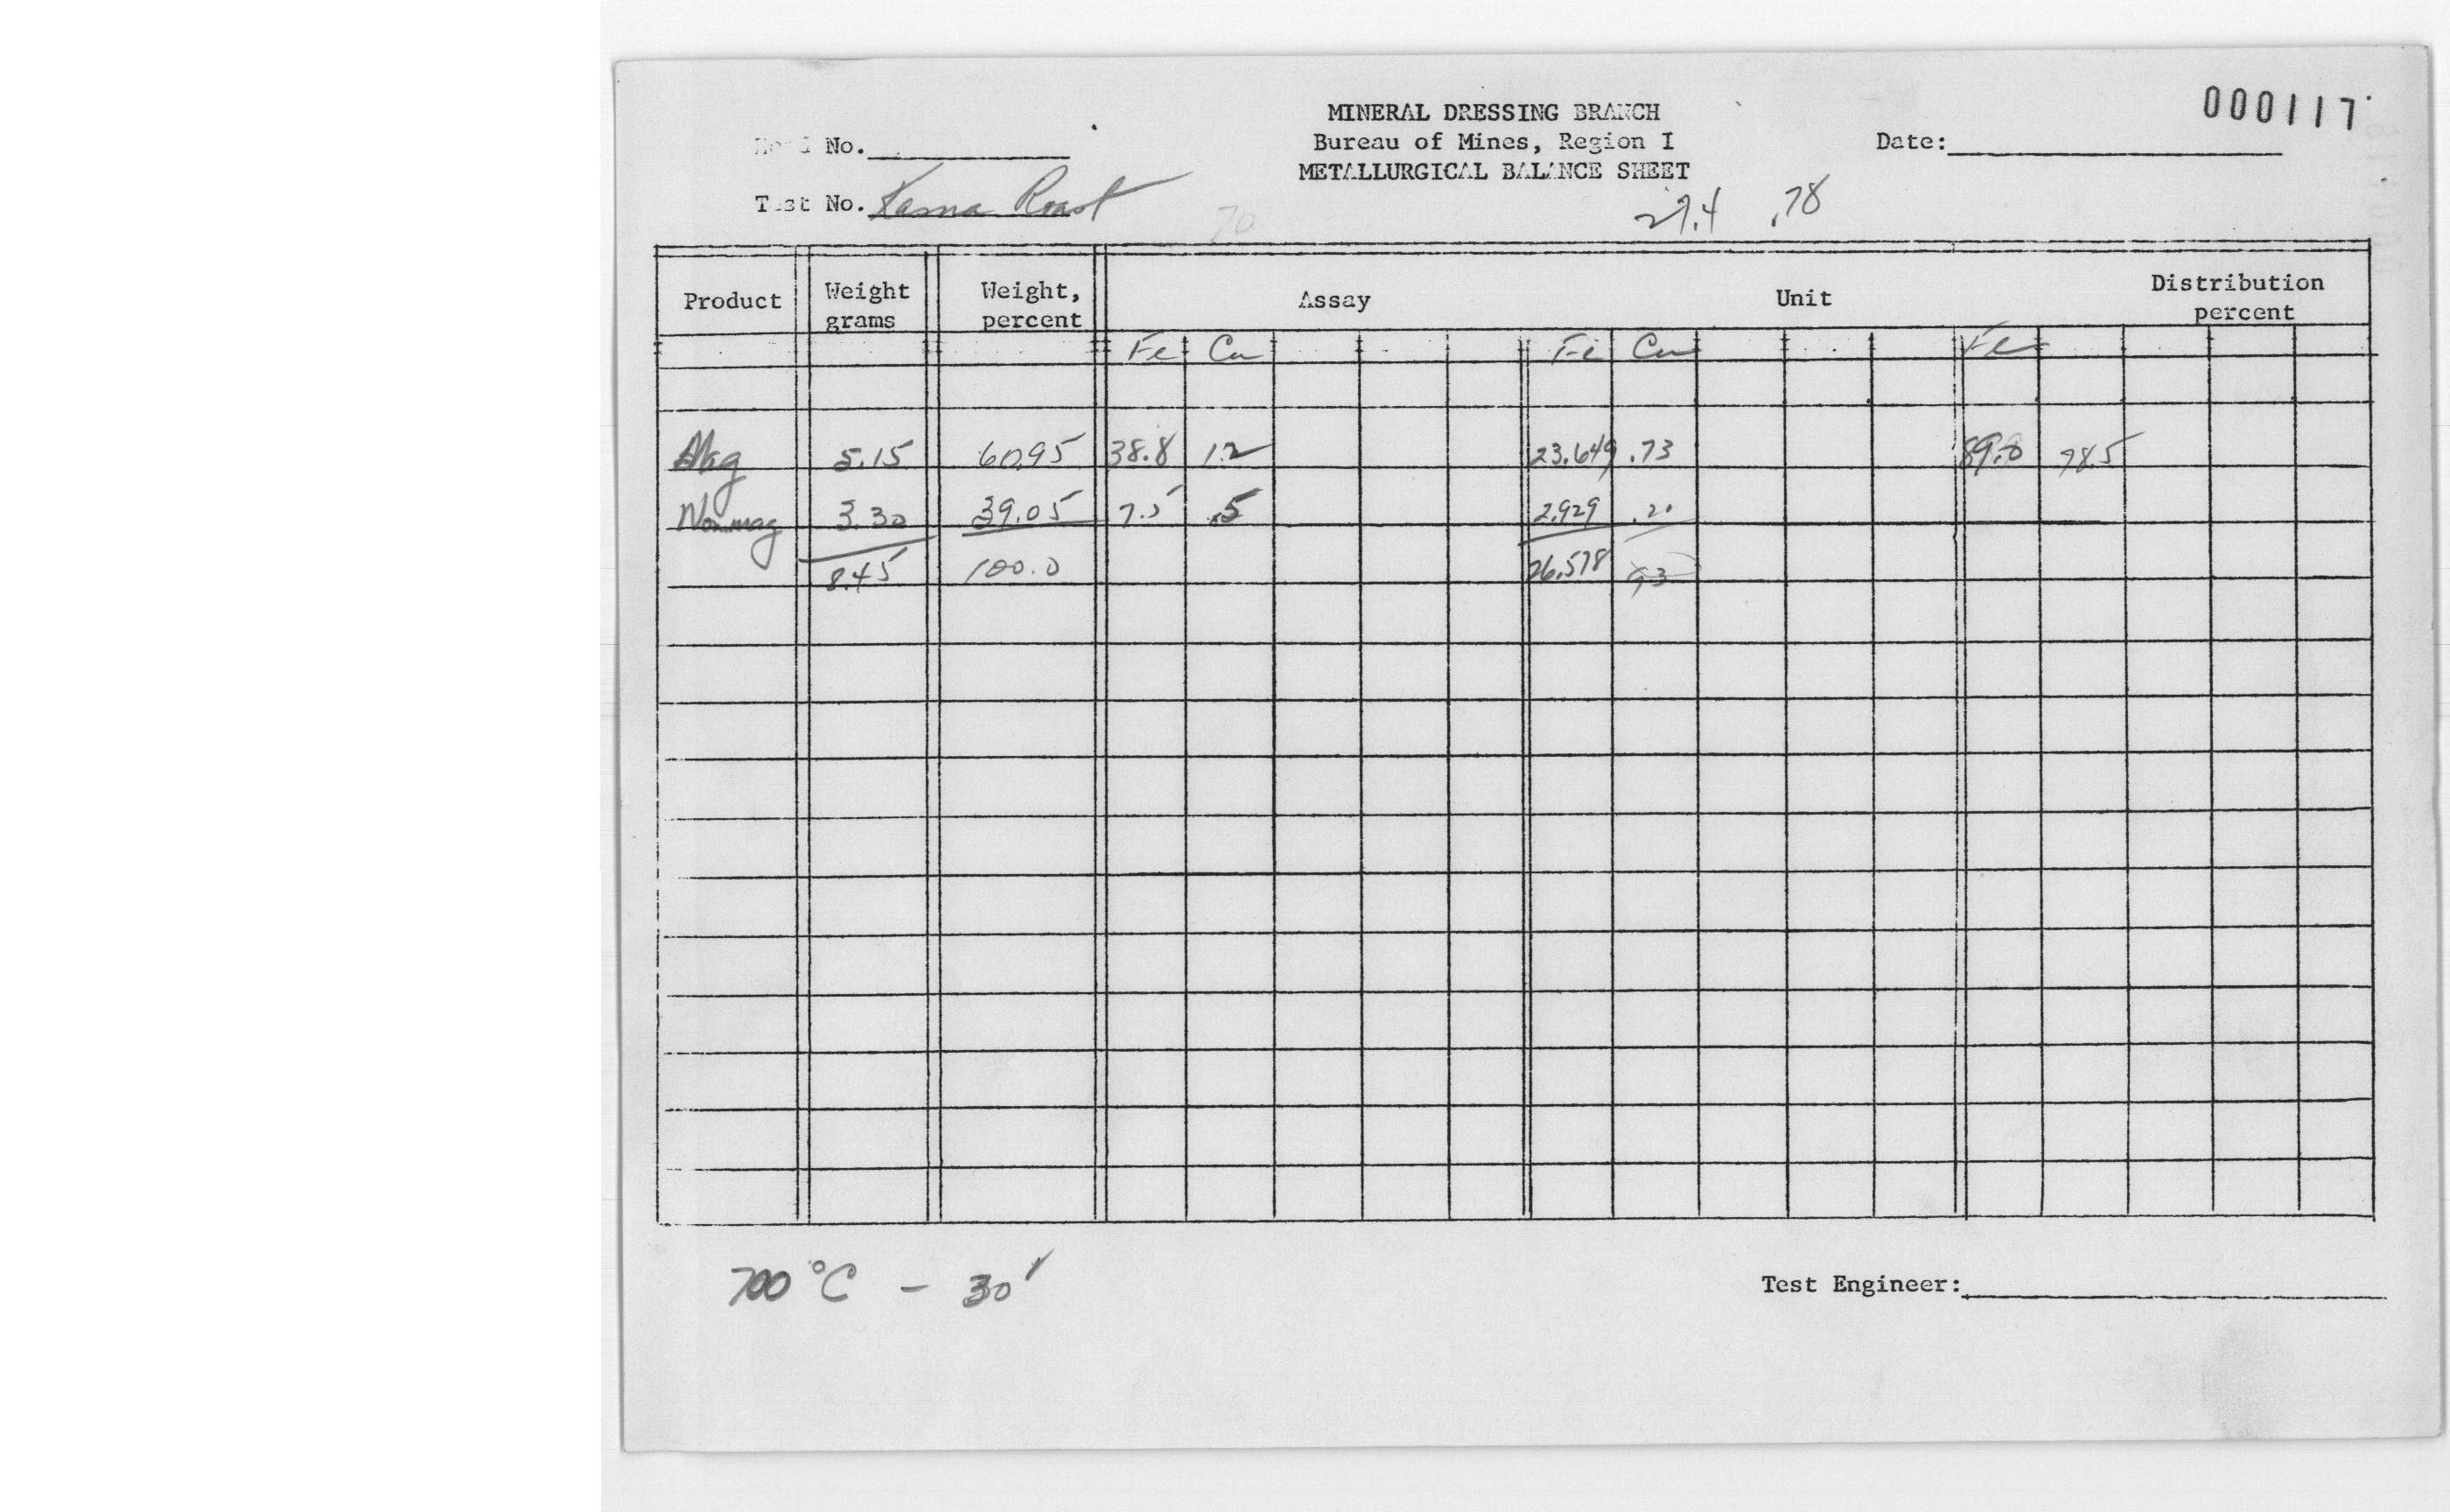 000117
MINERAL DRESSING BRANCH
No. Bureau of Mines, Region I Date:
METALLURGICAL BALANCE SHEET
Test No. Roast 27.4 .78
70
Product Weight grams Weight, percent Assay Unit Distribution percent
Fe Cu Fe Cu Fe
Mag 5.15 60.95 38.8 1.2 23.649 .73 89.0 78.5
Nonmag 3.30 39.05 7.5 .5 2.929 .20
8.45 100.0 26.578 .93
700°C - 30'
Test Engineer: